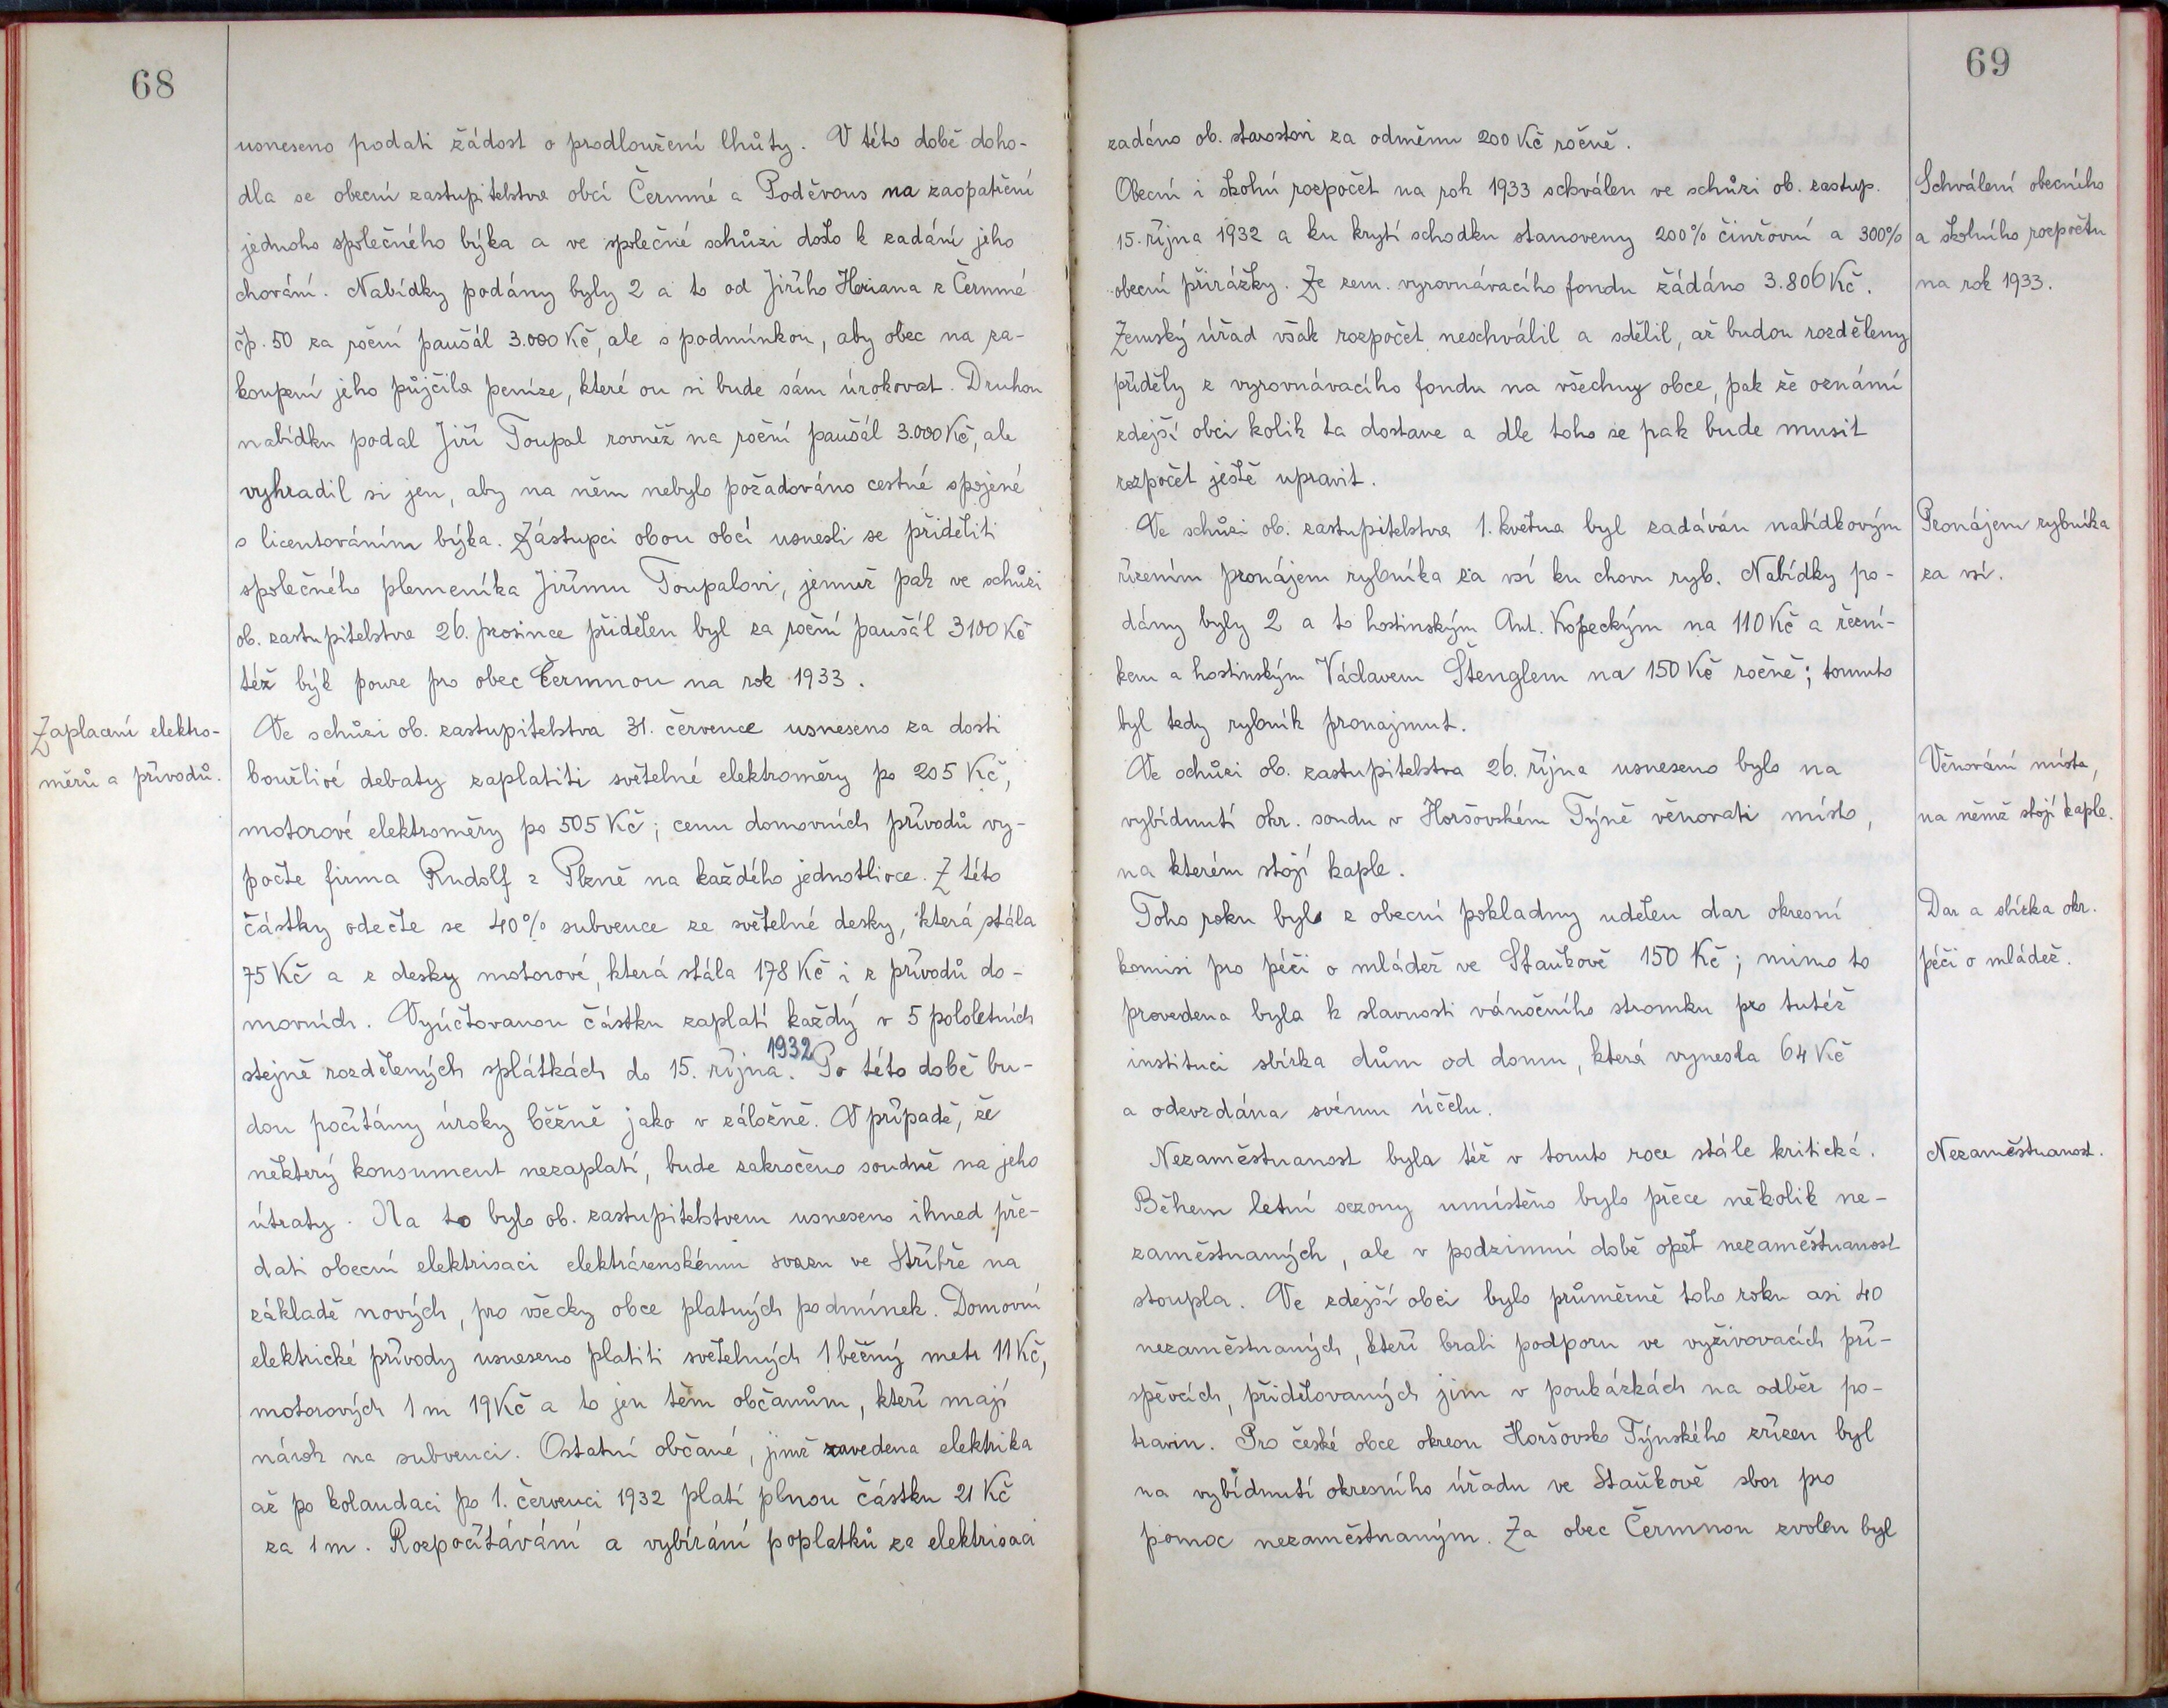 68
usneseno podati žádost o prodloužení lhůty. V této době doho-
dla se obecní zastupitelstva obcí Čermné a Poděvous na zaopatření
jednoho společného býka a ve společné schůzi došlo k zadání jeho
chování. Nabídky podány byly 2 a to od Jiřího Horiana z Čermné
čp. 50 za roční paušál 3.000 Kč, ale s podmínkou, aby obec na za-
koupení jeho půjčila peníze, které on si bude sám úrokovat. Druhou
nabídku podal Jiří Toupal rovněž na roční paušál 3.000 Kč, ale
vyhradil si jen, aby na něm nebylo požadováno cestné spojené
s licentováním býka. Zástupci obou obcí usnesli se přiděliti
společného plemeníka Jiřímu Toupalovi, jemuž pak ve schůzi
ob. zastupitelstva 26. prosince přidělen byl za roční paušál 3100 Kč
též býk pouze pro obec Čermnou na rok 1933.
Zaplacení elektro-
měrů a přívodů.
Ve schůzi ob. zastupitelstva 31. července usneseno za dosti
bouřlivé debaty zaplatiti světelné elektroměry po 205 Kč,
motorové elektroměry po 505 Kč; cenu domovních přívodů vy-
počte firma Rudolf z Plzně na každého jednotlivce. Z této
částky odečte se 40% subvence ze světelné desky, která stála
75 Kč a z desky motorové, která stála 178 Kč i z přívodů do-
movních. Vyúčtovanou částku zaplatí každý v 5 pololetních
stejně rozdělených splátkách do 15. října 1932. Po této době bu-
dou počítány úroky běžně jako v záložně. V případě, že
některý konsument nezaplatí, bude zakročeno soudně na jeho
útraty. Na to bylo ob. zastupitelstvem usneseno ihned pře-
dati obecní elektrisaci elektrárenskému svazu ve Stříbře na
základě nových, pro všecky obce platných podmínek. Domovní
elektrické přívody usneseno platiti světelných 1 běžný metr 11 Kč,
motorových 1 m 19 Kč a to jen těm občanům, kteří mají
nárok na subvenci. Ostatní občané, jimž zavedena elektrika
až po kolaudaci po 1. červenci 1932 platí plnou částku 21 Kč
za 1 m. Rozpočítávání a vybírání poplatků za elektrisaci
69
zadáno ob. starostovi za odměnu 200 Kč ročně.
Obecní i školní rozpočet na rok 1933 schválen ve schůzi ob. zastup.
15. října 1932 a ku krytí schodku stanoveny 200% činžovní a 300%
obecní přirážky. Ze zem. vyrovnávacího fondu žádáno 3.806 Kč.
Zemský úřad však rozpočet neschválil a sdělil, až budou rozděleny
příděly z vyrovnávacího fondu na všechny obce, pak že oznámí
zdejší obci kolik ta dostane a dle toho se pak bude musit
rozpočet ještě upravit.
Schválení obecního
a školního rozpočtu
na rok 1933.
Ve schůzi ob. zastupitelstva 1. května byl zadáván nabídkovým
řízením pronájem rybníka za vsí ku chovu ryb. Nabídky po-
dány byly 2 a to hostinským Ant. Kopeckým na 110 Kč a řezní-
kem a hostinským Václavem Štenglem na 150 Kč ročně; tomuto
byl tedy rybník pronajmut.
Pronájem rybníka
za vsí.
Ve schůzi ob. zastupitelstva 26. října usneseno bylo na
vybídnutí okr. soudu v Horšovském Týně věnovati místo,
na kterém stojí kaple.
Věnování místa,
na němž stojí kaple.
Toho roku byl z obecní pokladny udělen dar okresní
komisi pro péči o mládež ve Staňkově 150 Kč; mimo to
provedena byla k slavnosti vánočního stromku pro tutéž
instituci sbírka dům od domu, která vynesla 64 Kč
a odevzdána svému účelu.
Dar a sbírka okr.
péči o mládež.
Nezaměstnanost byla též v tomto roce stále kritická.
Během letní sezony umístěno bylo přece několik ne-
zaměstnaných, ale v podzimní době opět nezaměstnanost
stoupla. Ve zdejší obci bylo průměrně toho roku asi 40
nezaměstnaných, kteří brali podporu ve vyživovacích pří-
spěvcích, přidělovaných jim v poukázkách na odběr po-
travin. Pro české obce okresu Horšovsko Týnského zřízen byl
na vybídnutí okresního úřadu ve Staňkově sbor pro
pomoc nezaměstnaným. Za obec Čermnou zvolen byl
Nezaměstnanost.